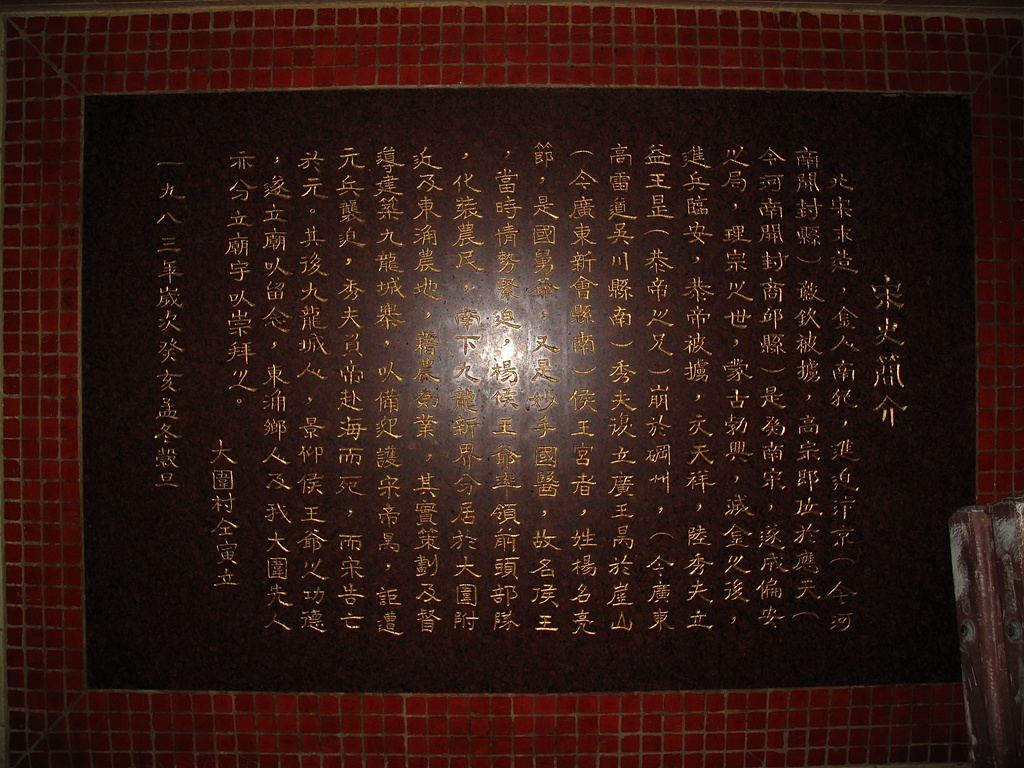 宋史簡介
北宋末造，金人南犯，進迫汴京（今河
南開封縣）徽欽被擄，高宗即位於應天（
今河南開封商邱縣）是為南宋，遂成偏安
之局，理宗之世，蒙古勃興，滅金之後，
進兵臨安，恭帝被擄，文天祥，陸秀夫立
益王昰（恭帝之兄）崩於碙州，（今廣東
高雷道吳川縣南）秀夫復立廣王昺於崖山
（今廣東新會縣南）侯王宮者，姓楊名亮
節，是國舅爺，又是妙手國醫，故名侯王
，當時情勢緊迫，楊侯王爺率領前頭部隊
，化裝農民，南下九龍新界分居於大圍附
近及東涌農地，藉農為業，其實策劃及督
導建築九龍城寨，以備迎護宋帝昺，詎遭
元兵襲迫，秀夫負帝赴海而死，而宋告亡
於元。其後九龍城人，景仰侯王爺之功德
，遂立廟以留念，東涌鄉人及我大圍先人
亦分立廟宇以崇拜之。
大圍村仝寅立
一九八三年歲次癸亥孟冬穀旦